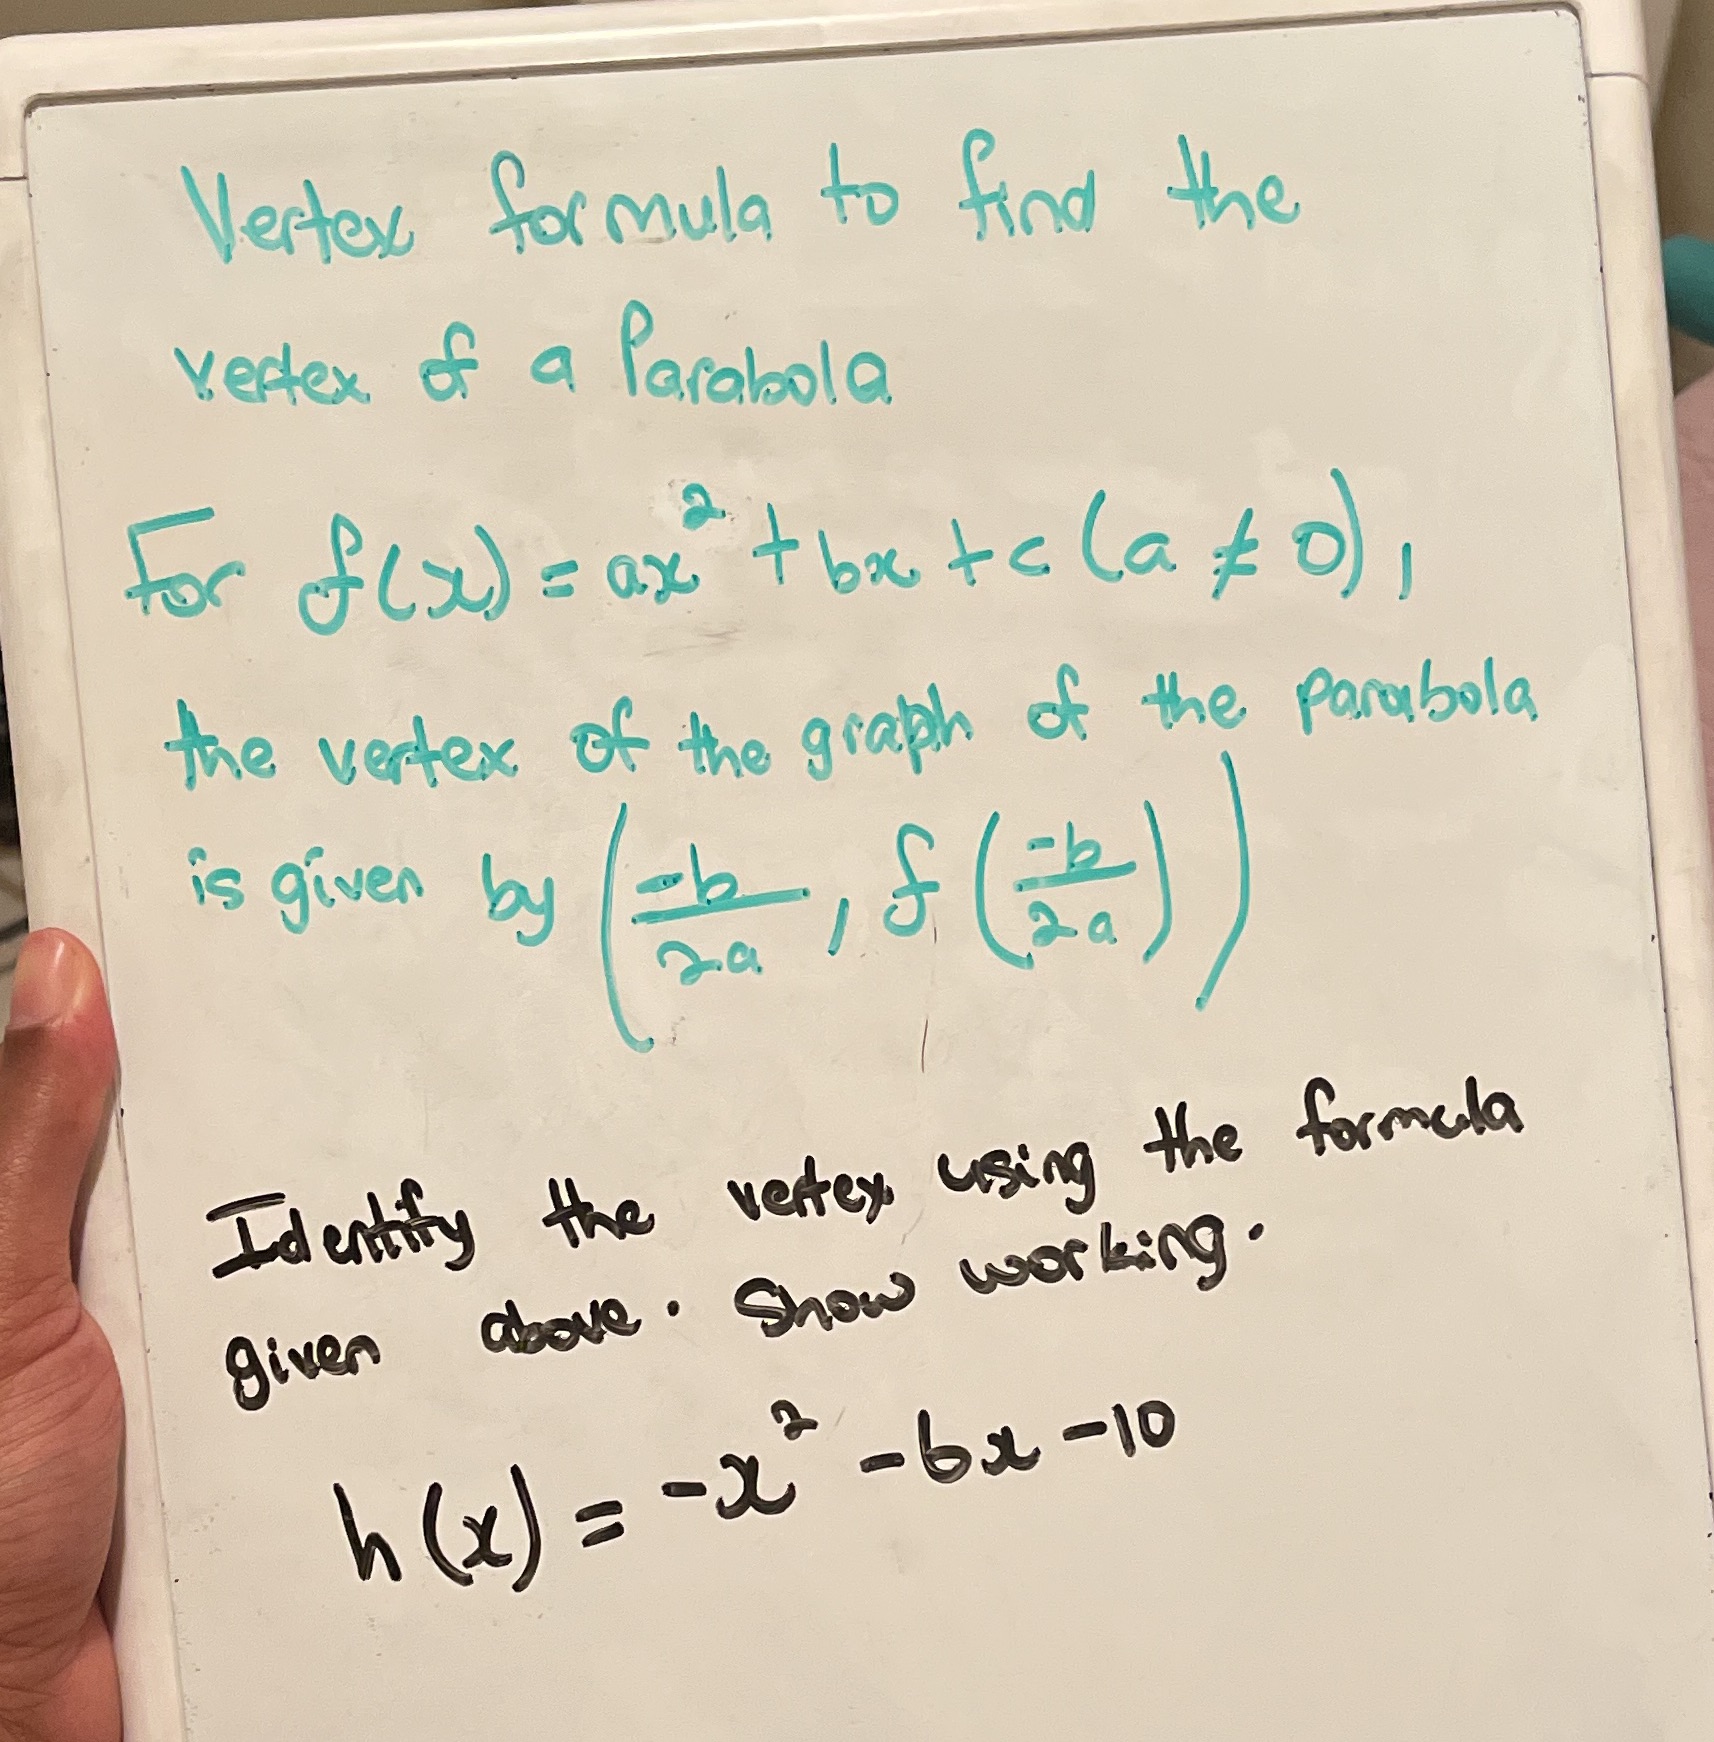 Vertex formula to find the
vertex of a Parabola
For f(x) = ax² + bx + c (a ≠ 0),
the vertex of the graph of the parabola
is given by (-b/2a, f(-b/2a))
Identify the vertex using the formula
given above. Show working.
h(x) = -x² - 6x - 10